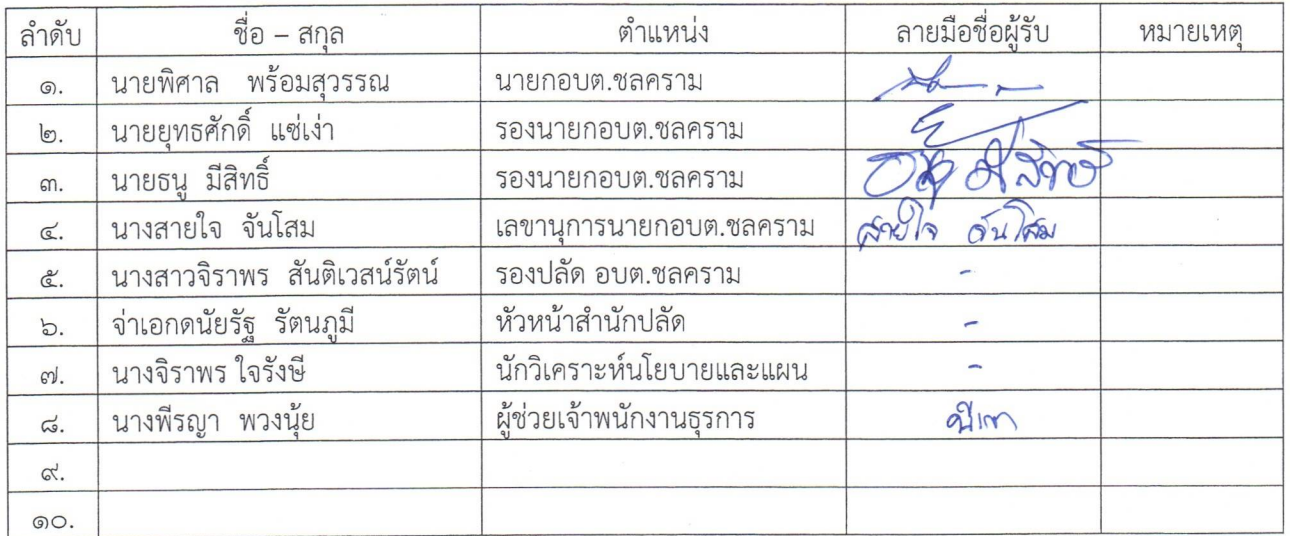 ลำดับ ชื่อ – สกุล ตำแหน่ง ลายมือชื่อผู้รับ หมายเหตุ
๑. นายพิศาล พร้อมสุวรรณ นายกอบต.ชลคราม
๒. นายยุทธศักดิ์ แซ่เง่า รองนายกอบต.ชลคราม
๓. นายธนู มีสิทธิ์ รองนายกอบต.ชลคราม ธนู มีสิทธิ์
๔. นางสายใจ จันโสม เลขานุการนายกอบต.ชลคราม สายใจ จันโสม
๕. นางสาวจิราพร สันติเวสน์รัตน์ รองปลัด อบต.ชลคราม -
๖. จ่าเอกดนัยรัฐ รัตนภูมี หัวหน้าสำนักปลัด -
๗. นางจิราพร ใจรังษี นักวิเคราะห์นโยบายและแผน -
๘. นางพีรญา พวงนุ้ย ผู้ช่วยเจ้าพนักงานธุรการ
๙.
๑๐.